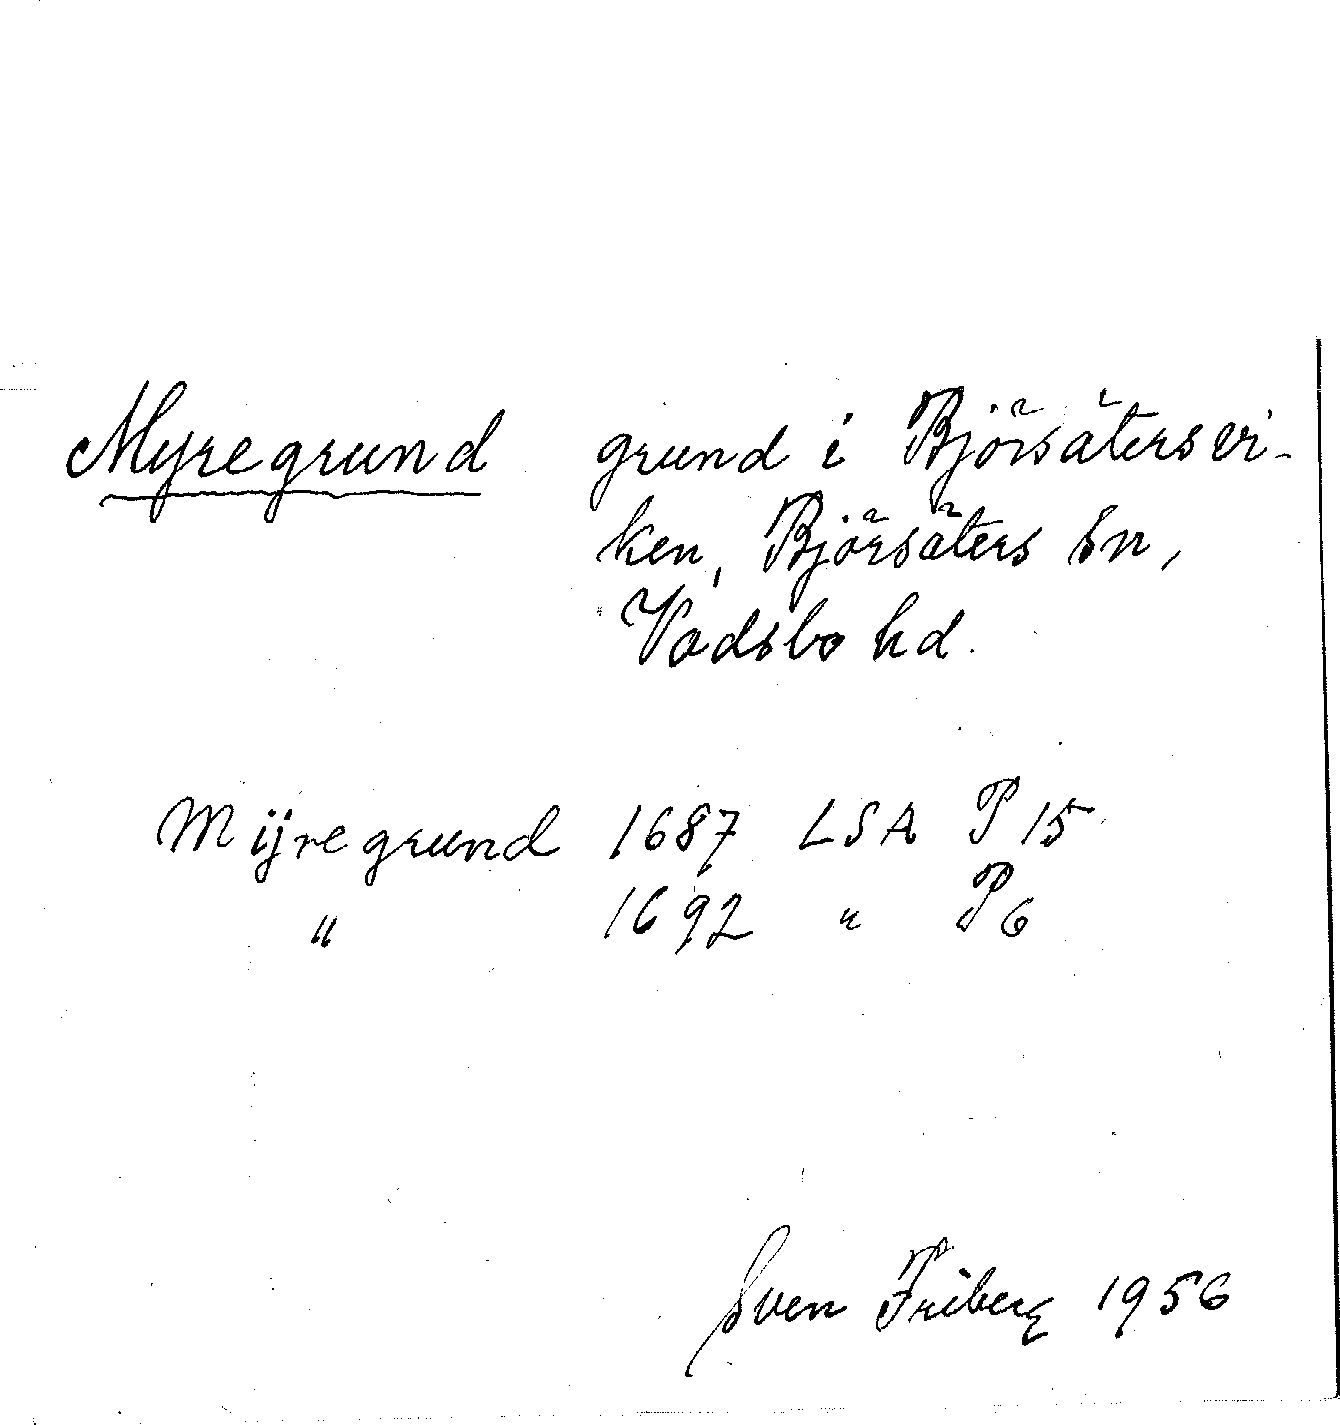 Myregrund grund i Björsätersvi-
ken, Björsäters sn,
Vadsbo hd.
Mijregrund 1687 LSA P 15
" 1692 " P 6
Sven Friberg 1956